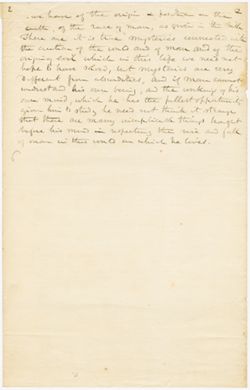 2 2
we have of the origin & position on this
earth, of the race of man, as given in the
There are it is true mysteries connected with
the creation of the world and of man and of the
origin of evil which in this life we need not
hope to have solved, but mysteries are very
different from absurdities, and if man cannot
understand his own being, and the working of his
own mind, which he has the fullest opportunity
given him to study he need not think it strange
that there are many unexplained things brought
before his mind in respecting the rise and fall
of man in this world in which he lives.